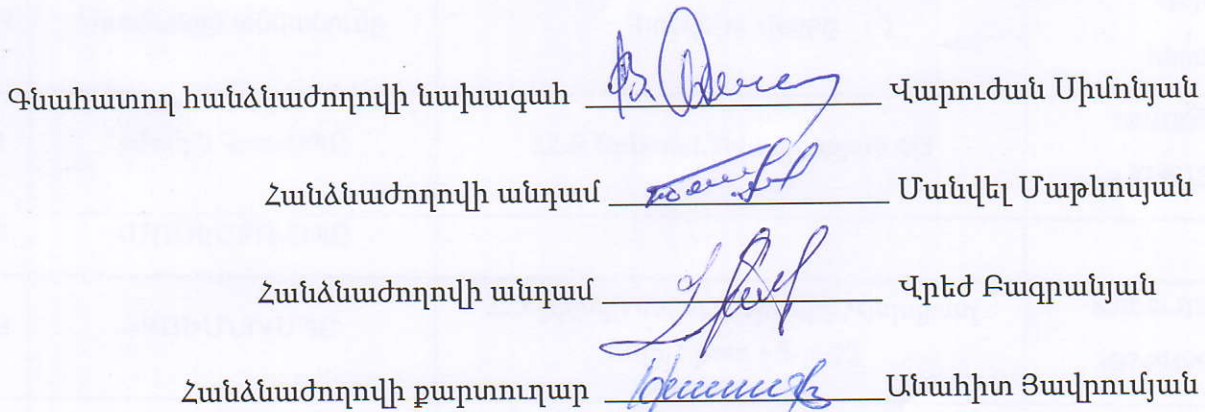 Գնահատող հանձնաժողովի նախագահ Վարուժան Սիմոնյան
Հանձնաժողովի անդամ Մանվել Մաթևոսյան
Հանձնաժողովի անդամ Վրեժ Բագրանյան
Հանձնաժողովի քարտուղար Անահիտ Յավրումյան